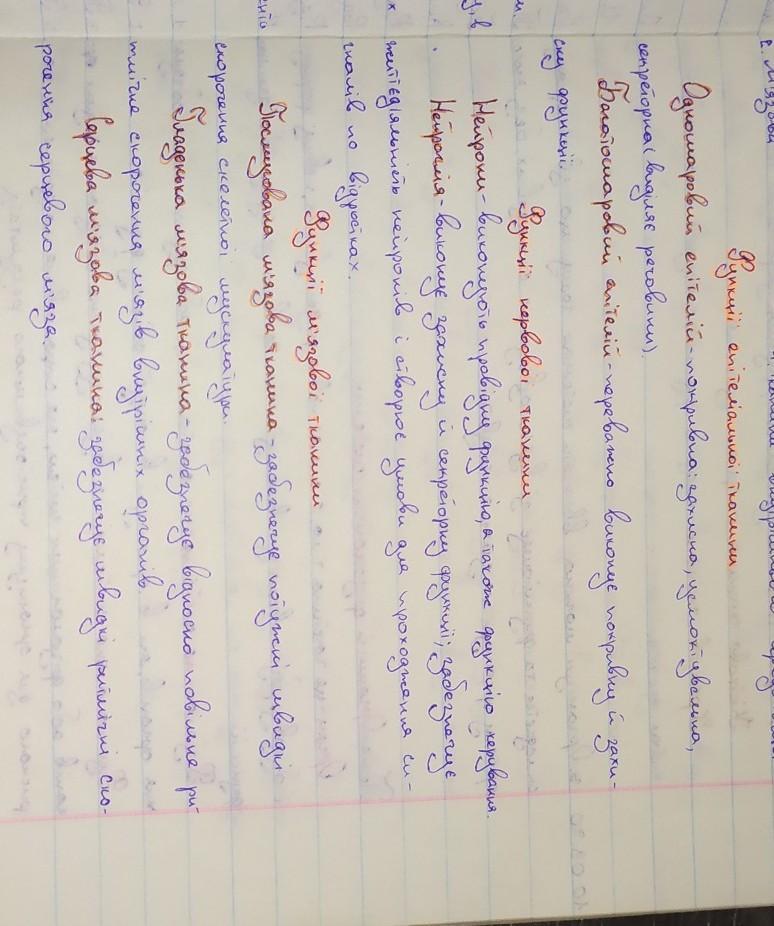 в. М'язова
Функції епітеліальної тканини
Одношаровий епітелій - покривна: захисна, всмоктувальна,
секреторна( виділяє речовини).
Багатошаровий епітелій - переважно виконує покривну й захи-
сну функції.
Функції нервової тканини
Нейрони - виконують провідну функцію, а також функцію керування.
Нейроглія - виконує захисну й секреторну функції; забезпечує
життєдіяльність нейронів і створює умови для проходження си-
гналів по відростках.
Функції м'язової тканини
Посмугована м'язова тканина - забезпечує потужні швидкі
скорочення скелетної мускулатури.
Гладенька м'язова тканина - забезпечує відносно повільне ри-
тмічне скорочення м'язів внутрішніх органів
Серцева м'язова тканина: забезпечує швидкі ритмічні ско-
рочення серцевого м'яза.